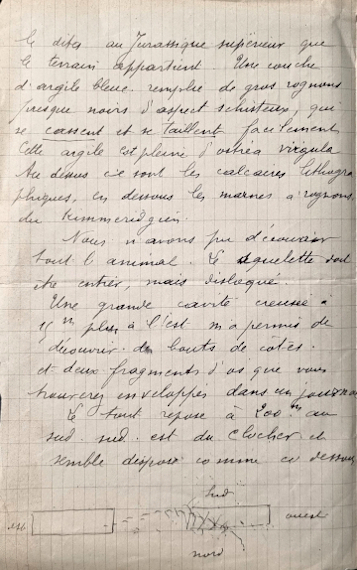 le dites au Jurassique supérieur que
le terrain appartient. Une couche
d'argile bleue remplie de gros rognons
presque noirs d'aspect schisteux, qui
se cassent et se taillent facilement
Cette argile est pleine d'ostréa virgula
Au dessus ce sont les calcaires lithogra
phiques, en dessous les marnes à rognons
du Kimmeridgien.
Nous n'avons pu découvrir
tout l'animal. Le squelette doit
être entier, mais disloqué.
Une grande cavité creusée à
15 m plus à l'est m'a permis de
découvrir des bouts de côtes
et deux fragments d'os que vous
trouverez enveloppés dans un journal
Le tout repose à 200 m au
sud. sud. est du clocher et
semble disposé comme ci dessous
sud
est
ouest
nord